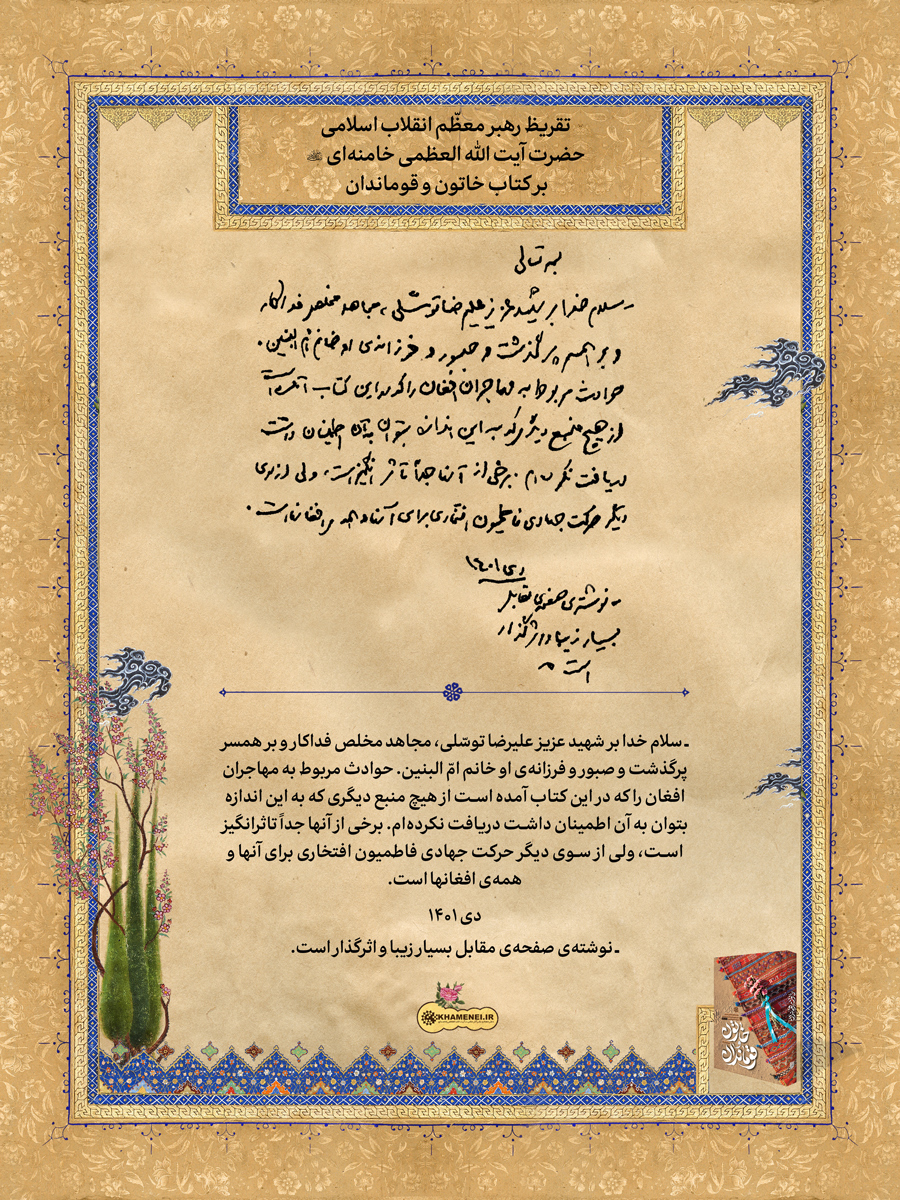 تقریظ رهبر معظّم انقلاب اسلامی
حضرت آیت الله العظمی خامنه‌ای
بر کتاب خاتون و قوماندان
بسمه تعالی
ـ سلام خدا بر شهید عزیز علیرضا توسّلی، مجاهد مخلص فداکار
و بر همسر پرگذشت و صبور و فرزانه‌ی او خانم امّ البنین.
حوادث مربوط به مهاجران افغان را که در این کتاب آمده است
از هیچ منبع دیگری که به این اندازه بتوان به آن اطمینان داشت
دریافت نکرده‌ام. برخی از آنها جداً تأثرانگیز است، ولی از سوی
دیگر حرکت جهادی فاطمیون افتخاری برای آنها و همه‌ی افغانها است.
دی ۱۴۰۱
ـ نوشته‌ی صفحه‌ی مقابل
بسیار زیبا و اثرگذار
است
ـ سلام خدا بر شهید عزیز علیرضا توسّلی، مجاهد مخلص فداکار و بر همسر
پرگذشت و صبور و فرزانه‌ی او خانم امّ البنین. حوادث مربوط به مهاجران
افغان را که در این کتاب آمده است از هیچ منبع دیگری که به این اندازه
بتوان به آن اطمینان داشت دریافت نکرده‌ام. برخی از آنها جداً تاثرانگیز
است، ولی از سوی دیگر حرکت جهادی فاطمیون افتخاری برای آنها و
همه‌ی افغانها است.
دی ۱۴۰۱
ـ نوشته‌ی صفحه‌ی مقابل بسیار زیبا و اثرگذار است.
KHAMENEI.IR
خاتون
قوماندان